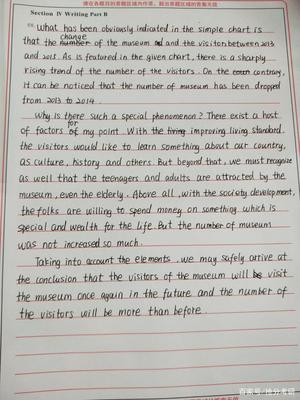 请在各题目的答题区域内作答，超出答题区域的答案无效
Section IV Writing Part B
What has been obviously indicated in the simple chart is
change
that the number of the museum and the visitor between 2013
and 2015. As is featured in the given chart, there is a sharply
rising trend of the number of the visitors. On the contrary,
it can be noticed that the number of museum has been dropped
from 2013 to 2014.
Why is there such a special phenomenon? There exist a host
for
of factors of my point. With the living improving living standard.
the visitors would like to learn something about our country,
as culture, history and others. But beyond that, we must recognize
as well that the teenagers and adults are attracted by the
museum, even the elderly. Above all, with the society development,
the folks are willing to spend money on something which is
special and wealth for the life. But the number of museum
was not increased so much.
Taking into account the elements, we may safely arrive at
the conclusion that the visitors of the museum will visit
the museum once again in the future and the number of
the visitors will be more than before.